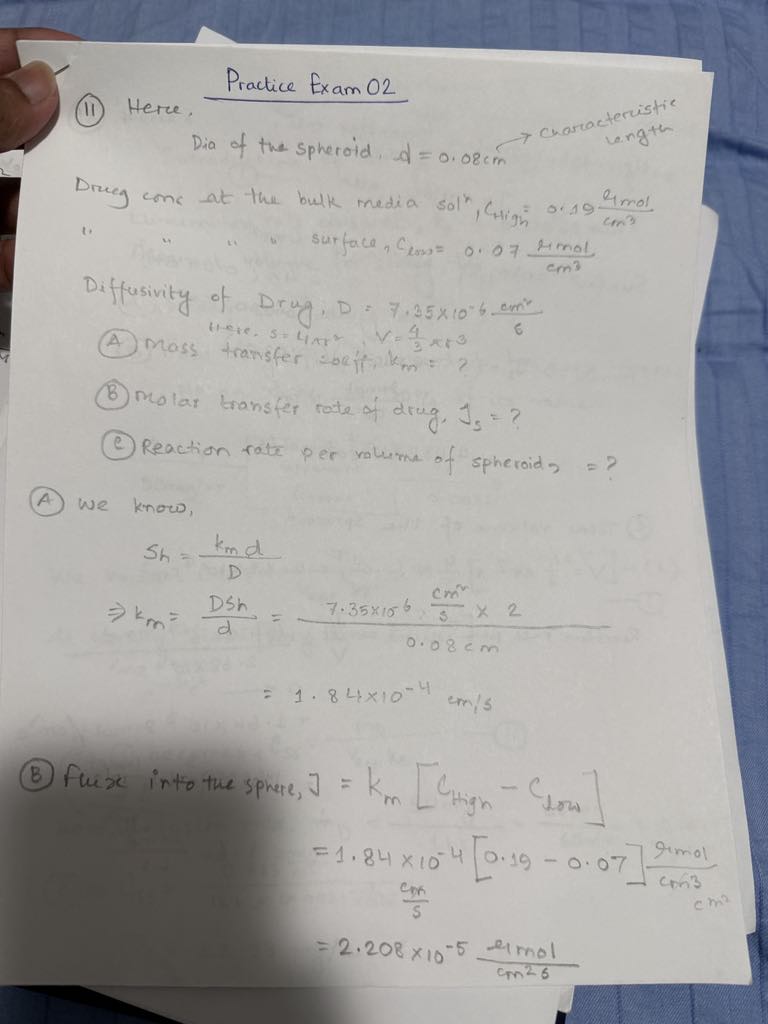 Practice Exam 02
(11) Here,
Dia of the spheroid, d = 0.08cm → characteristic length
Drug conc at the bulk media solⁿ, C_High = 0.19 μmol/cm³
" " " " surface, C_low = 0.07 μmol/cm³
Diffusivity of Drug, D = 7.35×10⁻⁶ cm²/s
Here, S = 4πr², V = 4/3 πr³
(A) Mass transfer coeff, k_m = ?
(B) Molar transfer rate of drug, J_s = ?
(C) Reaction rate per volume of spheroid, = ?
(A) We know,
Sh = k_m d / D
⇒ k_m = DSh / d = 7.35×10⁻⁶ cm²/s × 2 / 0.08 cm
= 1.84×10⁻⁴ cm/s
(B) Flux into the sphere, J = k_m [C_High − C_low]
= 1.84×10⁻⁴ cm/s [0.19 − 0.07] μmol/cm³
cm²
= 2.208×10⁻⁵ μmol/cm² s